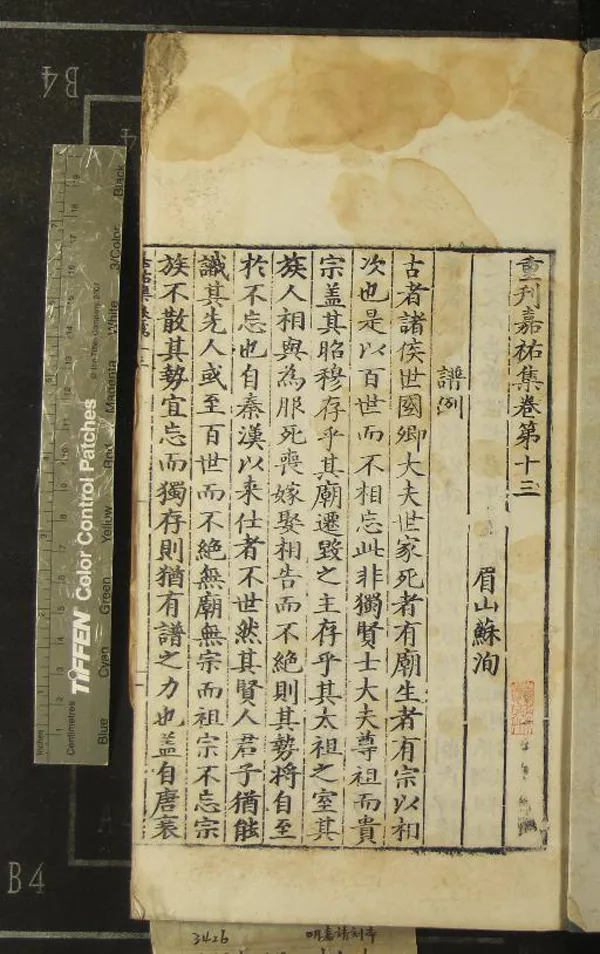 重刊嘉祐集卷第十三
眉山蘇洵
譜例
古者諸侯世國卿大夫世家死者有廟生者有宗以相
次也是以百世而不相忘此非獨賢士大夫尊祖而貴
宗盖其昭穆存乎其廟遷毀之主存乎其太祖之室其
族人相與為服死喪嫁娶相告而不絶則其勢將自至
於不忘也自秦漢以来仕者不世然其賢人君子猶能
識其先人或至百世而不絶無廟無宗而祖宗不忘宗
族不散其勢宜忘而獨存則猶有譜之力也盖自唐衰
B4
B4
Inches
Centimetres
TIFFEN Color Control Patches
Blue
Cyan
Green
Yellow
Red
Magenta
White
3/Color
Black
3426
明嘉靖刻本